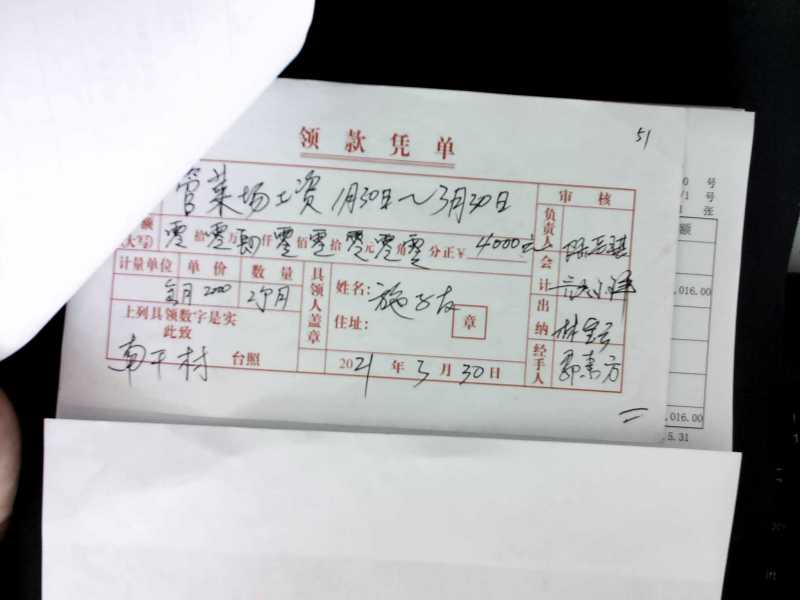 51
领款凭单
管菜场工资 1月30日～3月30日
审核
额(大写) 零拾零万肆仟零佰零拾零元零角零分正¥4000元
负责人
计量单位 单价 数量
会计
每月 2000 2个月
具领人盖章
姓名:施
住址:
章
出纳 林
上列具领数字是实
此致
南干村 台照
2021年3月30日
经手人 郭素方
号
/1 号
张
额
.016.00
.016.00
5.31